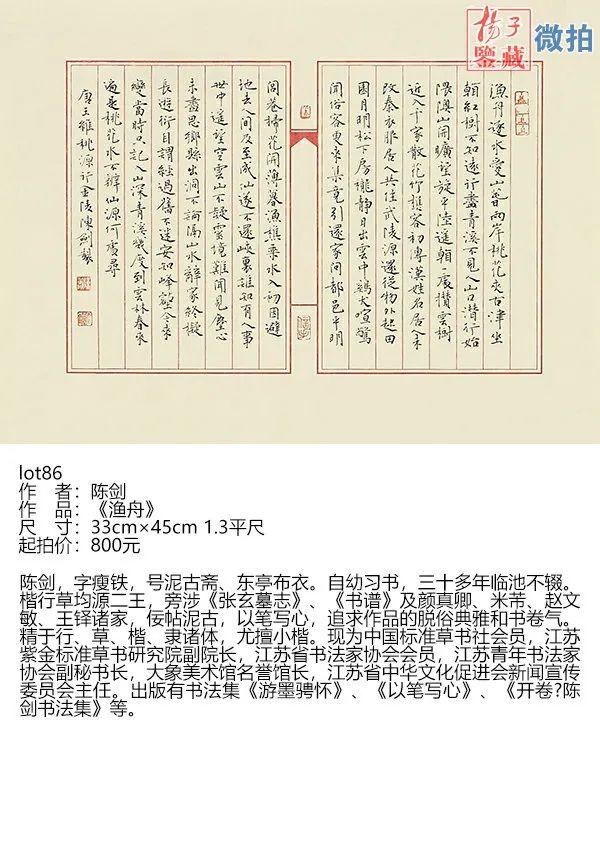 楊子
鑒藏
微拍
漁舟逐水愛山春兩岸桃花夾古津坐
看紅樹不知遠行盡青溪不見人山口潛行始
隈隩山開曠望旋平陸遙看一處攢雲樹
近入千家散花竹樵客初傳漢姓名居人未
改秦衣服居人共住武陵源還從物外起田
園月明松下房櫳靜日出雲中鷄犬喧驚
聞俗客爭來集競引還家問都邑平明
閭巷掃花開薄暮漁樵乘水入初因避
地去人間及至成仙遂不還峽裏誰知有人事
世中遙望空雲山不疑靈境難聞見塵心
未盡思鄉縣出洞不論隔山水辭家終擬
長遊衍自謂經過舊不迷安知峰壑今來
變當時只記入山深青溪幾度到雲林春來
遍是桃花水不辨仙源何處尋
唐王維桃源行金陵陳劍製
lot86
作　者：陈剑
作　品：《渔舟》
尺　寸：33cm×45cm 1.3平尺
起拍价：800元
陈剑，字瘦铁，号泥古斋、东亭布衣。自幼习书，三十多年临池不辍。
楷行草均源二王，旁涉《张玄墓志》、《书谱》及颜真卿、米芾、赵文
敏、王铎诸家，佞帖泥古，以笔写心，追求作品的脱俗典雅和书卷气。
精于行、草、楷、隶诸体，尤擅小楷。现为中国标准草书社会员，江苏
紫金标准草书研究院副院长，江苏省书法家协会会员，江苏青年书法家
协会副秘书长，大象美术馆名誉馆长，江苏省中华文化促进会新闻宣传
委员会主任。出版有书法集《游墨骋怀》、《以笔写心》、《开卷?陈
剑书法集》等。